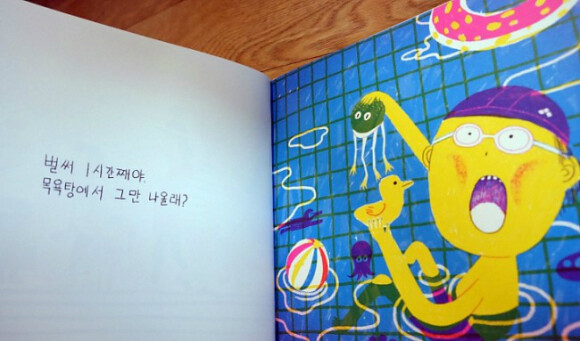 벌써 1시간째야.
목욕탕에서 그만 나올래?